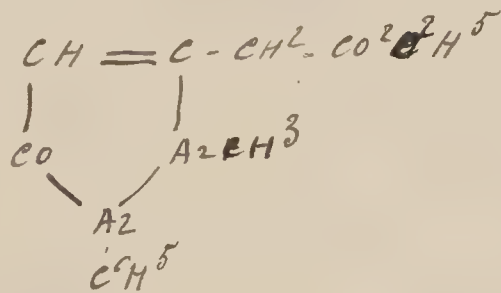 CH = C - CH² - CO²C²H⁵
CO AzCH³
Az
C⁶H⁵